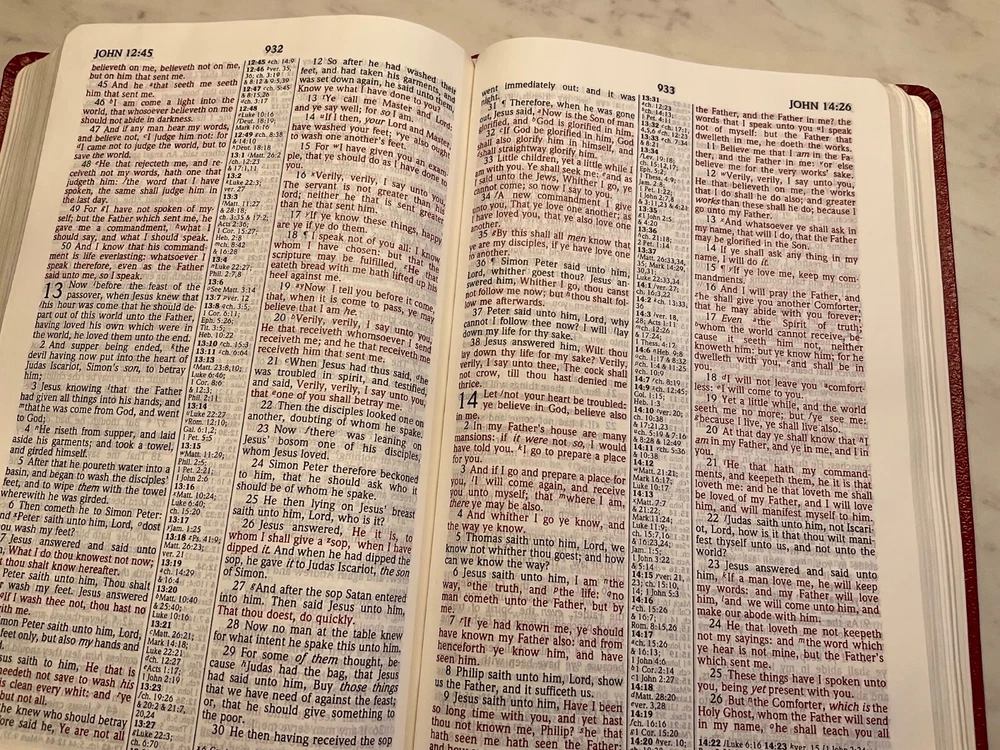 JOHN 12:45
932
believeth on me, believeth not on me,
but on him that sent me.
45 And he that seeth me seeth
him that sent me.
46 I am come a light into the
world, that whosoever believeth on me
should not abide in darkness.
47 And if any man hear my words,
and believe not, I judge him not: for
I came not to judge the world, but to
save the world.
48 He that rejecteth me, and re-
ceiveth not my words, hath one that
judgeth him: the word that I have
spoken, the same shall judge him in
the last day.
49 For I have not spoken of my-
self; but the Father which sent me, he
gave me a commandment, what I
should say, and what I should speak.
50 And I know that his command-
ment is life everlasting: whatsoever I
speak therefore, even as the Father
said unto me, so I speak.
13 Now before the feast of the
passover, when Jesus knew that
his hour was come that he should de-
part out of this world unto the Father,
having loved his own which were in
the world, he loved them unto the end.
2 And supper being ended, the
devil having now put into the heart of
Judas Iscariot, Simon's son, to betray
him;
3 Jesus knowing that the Father
had given all things into his hands, and
that he was come from God, and went
to God;
4 He riseth from supper, and laid
aside his garments; and took a towel,
and girded himself.
5 After that he poureth water into a
basin, and began to wash the disciples'
feet, and to wipe them with the towel
wherewith he was girded.
6 Then cometh he to Simon Peter:
and Peter saith unto him, Lord, dost
thou wash my feet?
7 Jesus answered and said unto
him, What I do thou knowest not now;
but thou shalt know hereafter.
Peter saith unto him, Thou shalt
wash my feet. Jesus answered
If I wash thee not, thou hast no
with me.
Simon Peter saith unto him, Lord,
feet only, but also my hands and
Jesus saith to him, He that is
needeth not save to wash his
is clean every whit: and ye
but not all.
he knew who should betray
fore said he, Ye are not all
12:45 ch. 14:9
12:48
Luke 10:16
Deut. 18:19;
Mark 16:16
12:49 ch. 8:38
& 14:10
Deut. 18:18
13:1 Matt. 26:2
13:2
Luke 22:3;
ver. 27
13:3
Matt. 11:27
& 28:18;
13:4
Luke 22:27;
Phil. 2:7,8
13:6
See Matt. 3:14
13:7 ver. 12
13:8 ch. 3:5;
1 Cor. 6:11;
Eph. 5:26;
Tit. 3:5;
Heb. 10:22
13:10 ch. 15:3
13:11 ch. 6:64
13:13
Matt. 23:8,10;
Luke 6:46;
1 Cor. 8:6
& 12:3;
Phil. 2:11
13:14
Luke 22:27
Rom. 12:10;
Gal. 6:1,2;
1 Pet. 5:5
13:15
Matt. 11:29;
Phil. 2:5;
1 Pet. 2:21;
1 John 2:6
13:16
Matt. 10:24;
Luke 6:40;
ch. 15:20
13:17
Jam. 1:25
13:18 Ps. 41:9;
Matt. 26:23;
ver. 21
13:19
ch. 14:29
& 16:4
13:20
Matt. 10:40
& 25:40;
Luke 10:16
13:21
Matt. 26:21;
Mark 14:18;
Luke 22:21
ch. 12:27
Acts 1:17;
1 John 2:19
13:23
ch. 19:26
& 20:2 & 21:7,
20,24
13:27
Luke 22:3;
ch. 6:70
12 So after he had washed their
feet, and had taken his garments, and
was set down again, he said unto them,
Know ye what I have done to you?
13 Ye call me Master and Lord:
and ye say well; for so I am.
14 If I then, your Lord and Master,
have washed your feet; ye also ought
to wash one another's feet.
15 For I have given you an exam-
ple, that ye should do as I have done to
you.
16 Verily, verily, I say unto you,
The servant is not greater than his
lord; neither he that is sent greater
than he that sent him.
17 If ye know these things, happy
are ye if ye do them.
18 ¶ I speak not of you all: I know
whom I have chosen: but that the
scripture may be fulfilled, He that
eateth bread with me hath lifted up his
heel against me.
19 Now I tell you before it come,
that, when it is come to pass, ye may
believe that I am he.
20 Verily, verily, I say unto you,
He that receiveth whomsoever I send
receiveth me; and he that receiveth me
receiveth him that sent me.
21 When Jesus had thus said, he
was troubled in spirit, and testified,
and said, Verily, verily, I say unto you,
that one of you shall betray me.
22 Then the disciples looked one on
another, doubting of whom he spake.
23 Now there was leaning on
Jesus' bosom one of his disciples,
whom Jesus loved.
24 Simon Peter therefore beckoned
to him, that he should ask who it
should be of whom he spake.
25 He then lying on Jesus' breast
saith unto him, Lord, who is it?
26 Jesus answered, He it is, to
whom I shall give a sop, when I have
dipped it. And when he had dipped the
sop, he gave it to Judas Iscariot, the son
of Simon.
27 And after the sop Satan entered
into him. Then said Jesus unto him,
That thou doest, do quickly.
28 Now no man at the table knew
for what intent he spake this unto him.
29 For some of them thought, be-
cause Judas had the bag, that Jesus
had said unto him, Buy those things
that we have need of against the feast;
or, that he should give something to
the poor.
30 He then having received the sop
933
JOHN 14:26
went immediately out: and it was
night.
31 ¶ Therefore, when he was gone
out, Jesus said, Now is the Son of man
glorified, and God is glorified in him.
32 If God be glorified in him, God
shall also glorify him in himself, and
shall straightway glorify him.
33 Little children, yet a little while I
am with you. Ye shall seek me: and as
I said unto the Jews, Whither I go, ye
cannot come; so now I say to you.
34 A new commandment I give
unto you, That ye love one another; as
I have loved you, that ye also love one
another.
35 By this shall all men know that
ye are my disciples, if ye have love one
to another.
36 ¶ Simon Peter said unto him,
Lord, whither goest thou? Jesus an-
swered him, Whither I go, thou canst
not follow me now; but thou shalt fol-
low me afterwards.
37 Peter said unto him, Lord, why
cannot I follow thee now? I will lay
down my life for thy sake.
38 Jesus answered him, Wilt thou
lay down thy life for my sake? Verily,
verily, I say unto thee, The cock shall
not crow, till thou hast denied me
thrice.
14 Let not your heart be troubled:
ye believe in God, believe also
in me.
2 In my Father's house are many
mansions: if it were not so, I would
have told you. I go to prepare a place
for you.
3 And if I go and prepare a place for
you, I will come again, and receive
you unto myself; that where I am,
there ye may be also.
4 And whither I go ye know, and
the way ye know.
5 Thomas saith unto him, Lord, we
know not whither thou goest; and how
can we know the way?
6 Jesus saith unto him, I am the
way, the truth, and the life: no
man cometh unto the Father, but by
me.
7 If ye had known me, ye should
have known my Father also: and from
henceforth ye know him, and have
seen him.
8 Philip saith unto him, Lord, show
us the Father, and it sufficeth us.
9 Jesus saith unto him, Have I been
so long time with you, and yet hast
thou not known me, Philip? he that
hath seen me hath seen the Father;
13:31
ch. 12:23
13:34
Lev. 19:18;
13:35
1 John 2:5
& 4:20
13:36
ch. 21:18;
2 Pet. 1:14
13:37
Matt. 26:33,34,
35; Mark 14:29,
30,31;
Luke 22:33,34
14:7 ch. 8:19
14:9 ch. 12:45;
Col. 1:15;
Heb. 1:3
14:10 ver. 20;
ch. 10:38
14:11 ch. 5:36
& 10:38
14:12
Matt. 21:21;
Mark 16:17;
Luke 10:17
14:13
Matt. 7:7
& 21:22;
Mark 11:24;
Luke 11:9;
ch. 15:7,16
& 16:23,24;
Jam. 1:5;
1 John 3:22
& 5:14
14:15 ver. 21,
23; ch. 15:10,
14; 1 John 5:3
14:16
ch. 15:26
& 16:7;
Rom. 8:15,26
14:17
ch. 15:26
& 16:13;
1 John 4:6
1 Cor. 2:14
1 John 2:27
14:18
Matt. 28:20
ver. 3,28
14:19
ch. 16:16
1 Cor. 15:20
14:20 ver. 10;
the Father, and the Father in me? the
words that I speak unto you I speak
not of myself: but the Father that
dwelleth in me, he doeth the works.
11 Believe me that I am in the Fa-
ther, and the Father in me: or else
believe me for the very works' sake.
12 Verily, verily, I say unto you,
He that believeth on me, the works
that I do shall he do also; and greater
works than these shall he do; because I
go unto my Father.
13 And whatsoever ye shall ask in
my name, that will I do, that the Father
may be glorified in the Son.
14 If ye shall ask any thing in my
name, I will do it.
15 ¶ If ye love me, keep my com-
mandments.
16 And I will pray the Father, and
he shall give you another Comforter,
that he may abide with you for ever;
17 Even the Spirit of truth;
whom the world cannot receive, be-
cause it seeth him not, neither
knoweth him: but ye know him; for he
dwelleth with you, and shall be in
you.
18 I will not leave you comfort-
less: I will come to you.
19 Yet a little while, and the world
seeth me no more; but ye see me:
because I live, ye shall live also.
20 At that day ye shall know that I
am in my Father, and ye in me, and I in
you.
21 He that hath my command-
ments, and keepeth them, he it is that
loveth me: and he that loveth me shall
be loved of my Father, and I will love
him, and will manifest myself to him.
22 Judas saith unto him, not Iscari-
ot, Lord, how is it that thou wilt mani-
fest thyself unto us, and not unto the
world?
23 Jesus answered and said unto
him, If a man love me, he will keep
my words: and my Father will love
him, and we will come unto him, and
make our abode with him.
24 He that loveth me not keepeth
not my sayings: and the word which
ye hear is not mine, but the Father's
which sent me.
25 These things have I spoken unto
you, being yet present with you.
26 But the Comforter, which is the
Holy Ghost, whom the Father will send
in my name, he shall teach you all
14:22 Luke 6:16 14:23 ver. 15